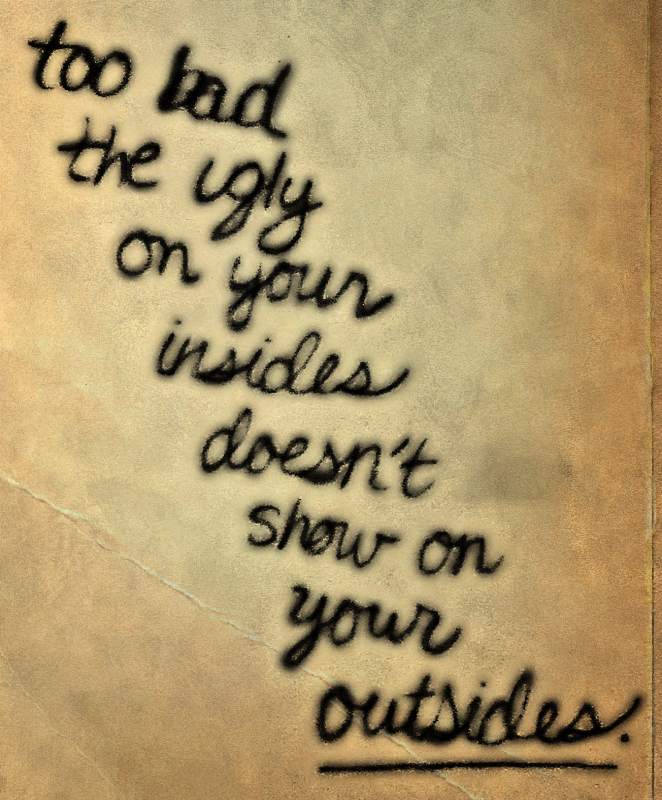 too bad
the ugly
on your
insides
doesn't
show on
your
outsides.